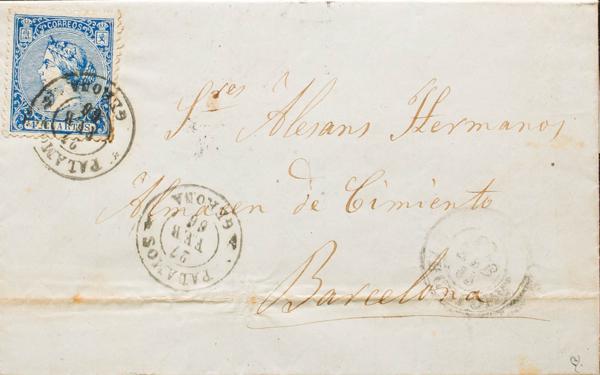 CORREOS
PALAMOS
GERONA
Sres Alesans Hermanos
Almacen de Cimiento
Barcelona
PALAMOS
27
FEB
66
GERONA